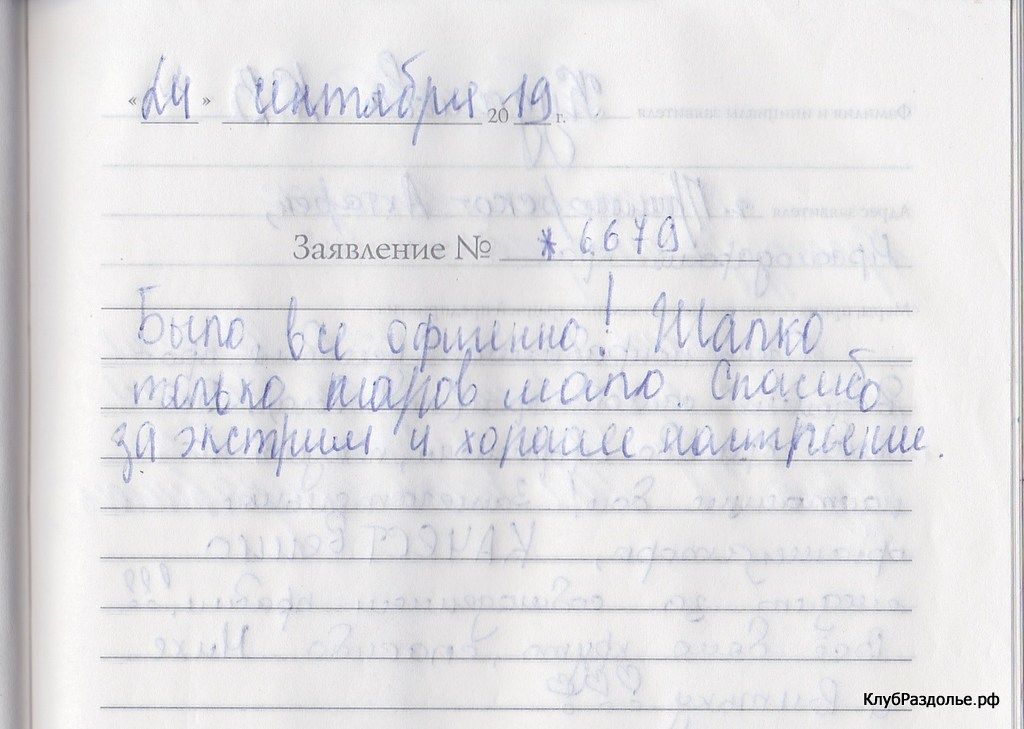 «24» сентября 2019 г.
Заявление № *6679
Было все офигенно! Жалко
только шаров мало. Спасибо
за экстрим и хорошее настроение.
КлубРаздолье.рф